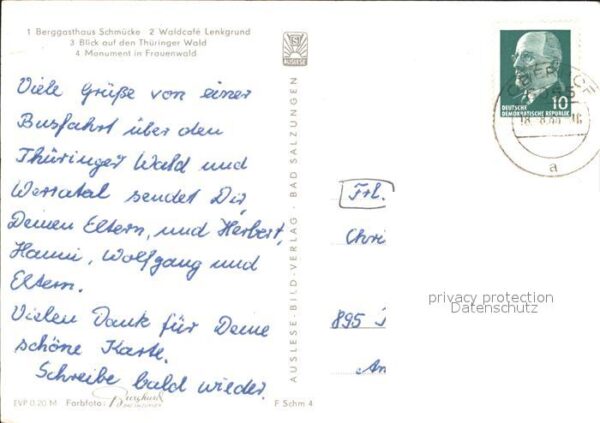 1 Berggasthaus Schmücke 2 Waldcafé Lenkgrund
3 Blick auf den Thüringer Wald
4 Monument in Frauenwald
Viele Grüße von einer
Busfahrt über den
Thüringer Wald und
Werratal sendet Dir,
Deinen Eltern, und Herbert,
Hanni, Wolfgang und
Eltern.
Vielen Dank für Deine
schöne Karte.
Schreibe bald wieder.
EVP 0.20 M Farbfoto:
F Schm 4
AUSLESE-BILD-VERLAG · BAD SALZUNGEN
AUSLESE
DEUTSCHE
DEMOKRATISCHE REPUBLIK
10
OBERHOF
a
Frl.
Chri
895
An
privacy protection
Datenschutz